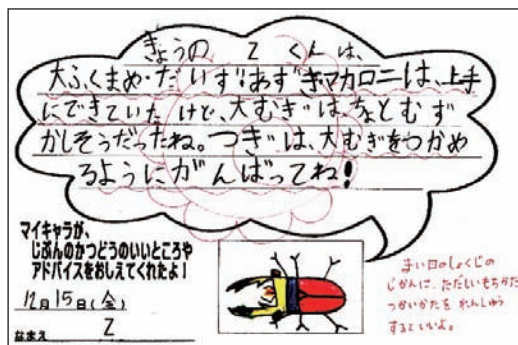 きょうの Z くんは、
大ふくまめ・だいず・あずきマカロニは、上手
にできていたけど、大むぎは、ちょとむず
かしそうだったね。つぎは、大むぎをつかめ
るようにがんばってね!
マイキャラが、
じぶんのかつどうのいいところや
アドバイスをおしえてくれたよ!
12月15日(金)
なまえ Z
まい日のしょくじの
じかんに、ただしいもちかた
つかいかたを れんしゅう
するといいよ。